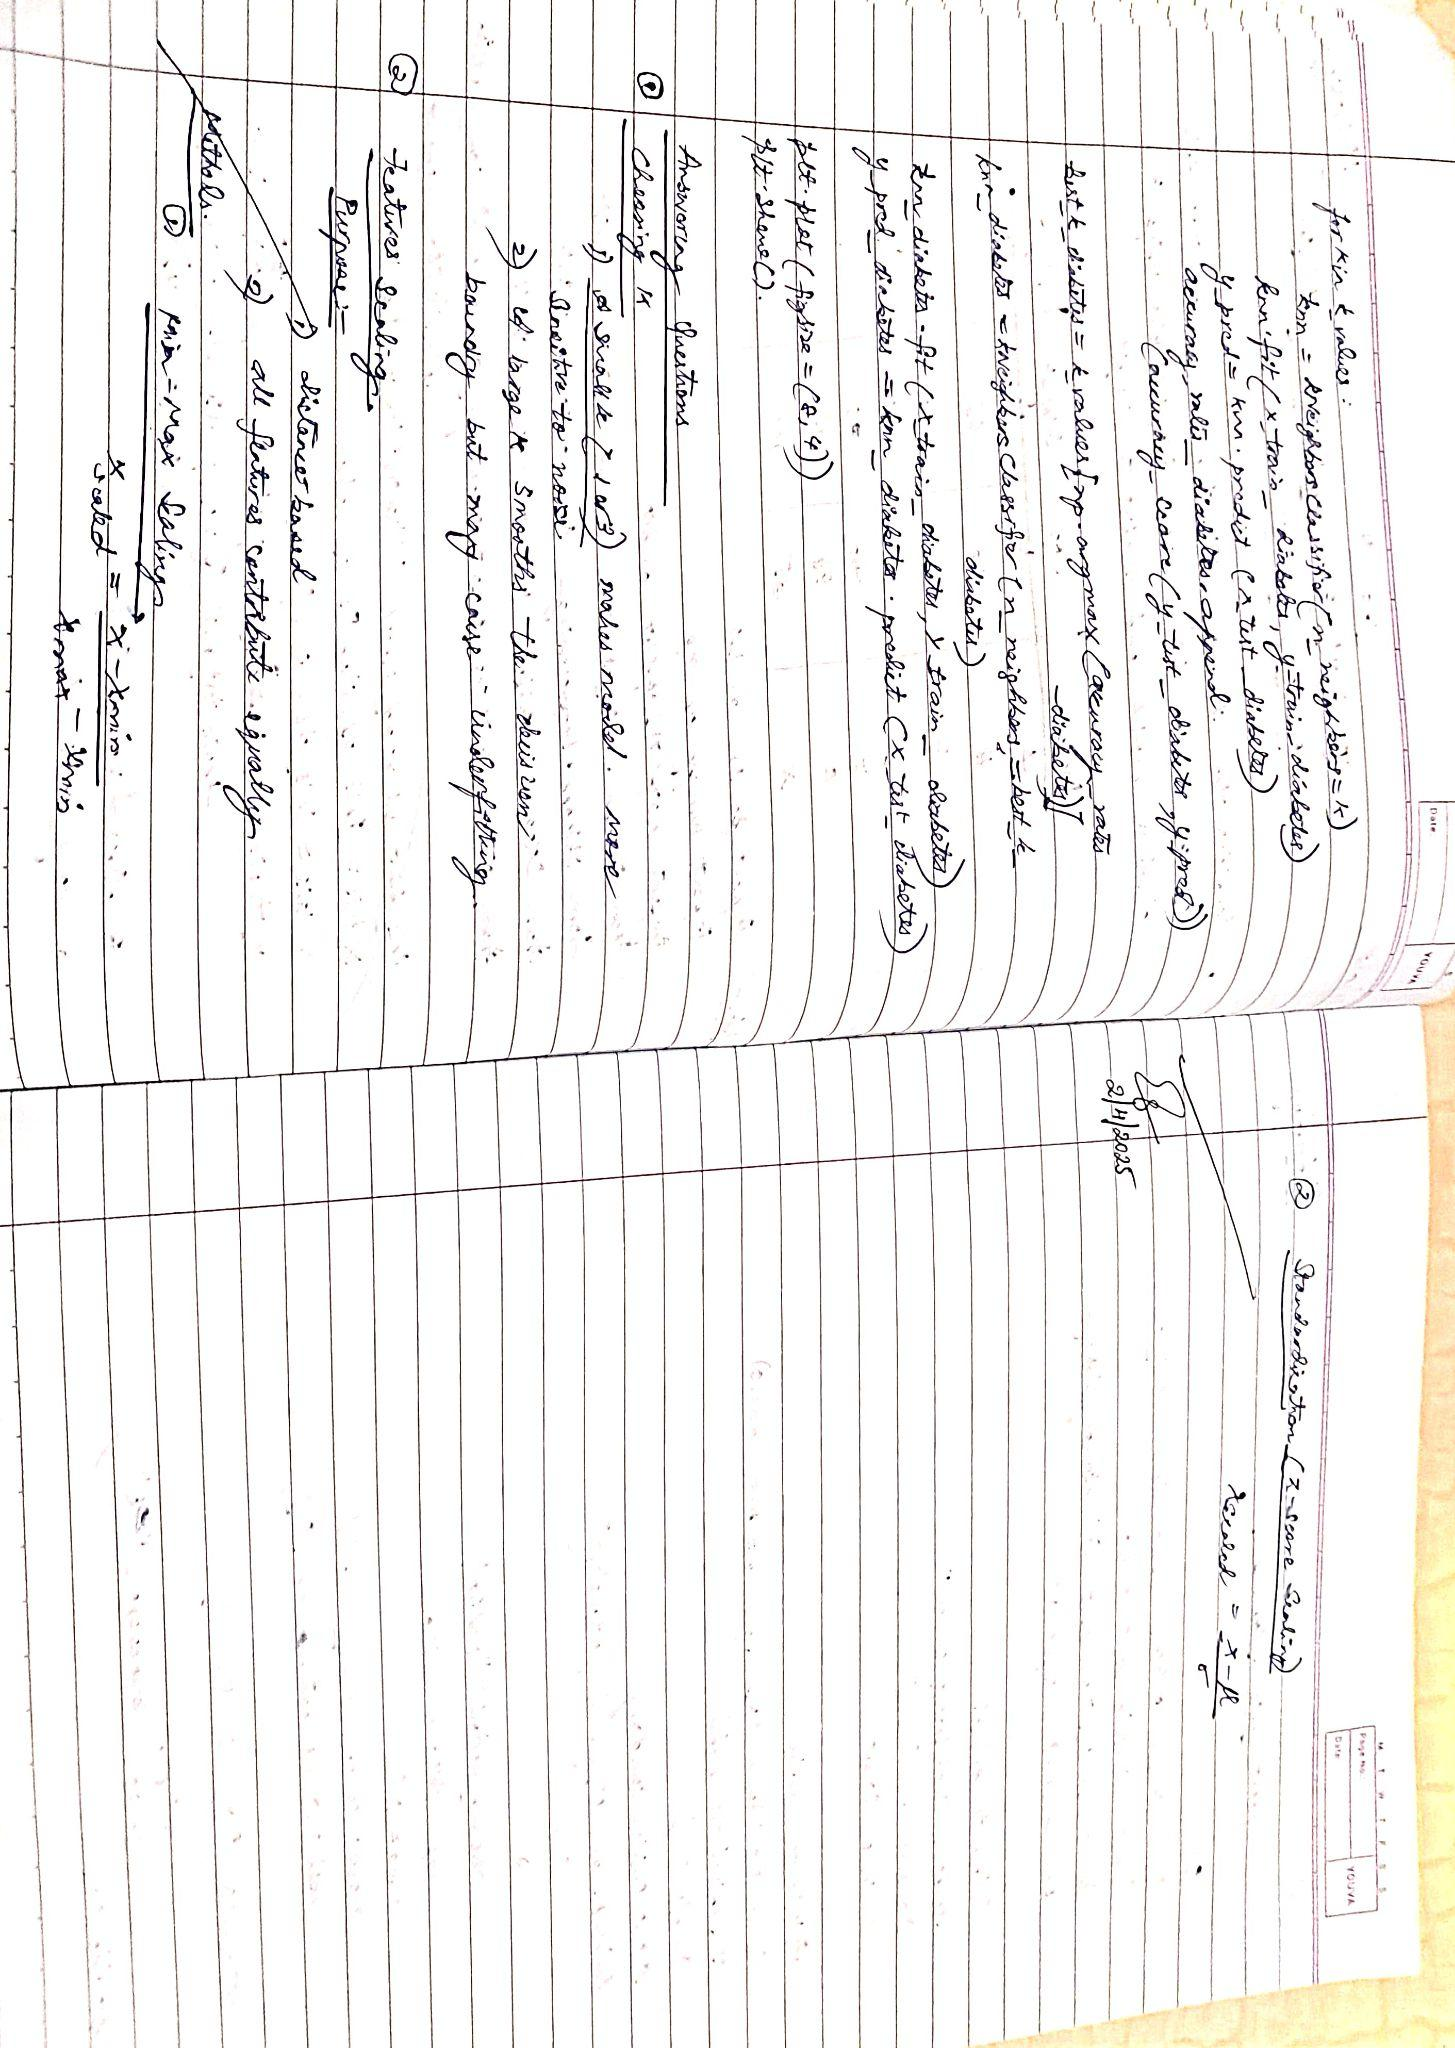 Date
YOUVA
for k in k values:
knn = KNeighborsClassifier(n_neighbors=k)
knn.fit(x_train_diabetes, y_train_diabetes)
y_pred = knn.predict(x_test_diabetes)
accuracy_rates_diabetes.append
(accuracy_score(y_test_diabetes, y_pred))
best_k_diabetes = k values[np.argmax(accuracy_rates
_diabetes)]
knn_diabetes = KNeighborsClassifier(n_neighbors = best_k_
diabetes)
knn_diabetes.fit(x_train_diabetes, y_train_diabetes)
y_pred_diabetes = knn_diabetes.predict(x_test_diabetes)
plt.plot(figsize=(8,4))
plt.show().
Answering Questions
Choosing K
1) A small k ( ) makes model more
sensitive to noise
2) A large K smooths the decision
boundry but may cause underfitting.
② Features Scaling.
Purpose:-
1) distance based
2) all features contribute equally.
Methods.
① Min-Max Scaling
x scaled = x - xmin
xmax - xmin
M T W T F S S
Page No.:
Date:
YOUVA
② Standardization (z-score Scaling)
xscaled = x-μ
σ
2/4/2025